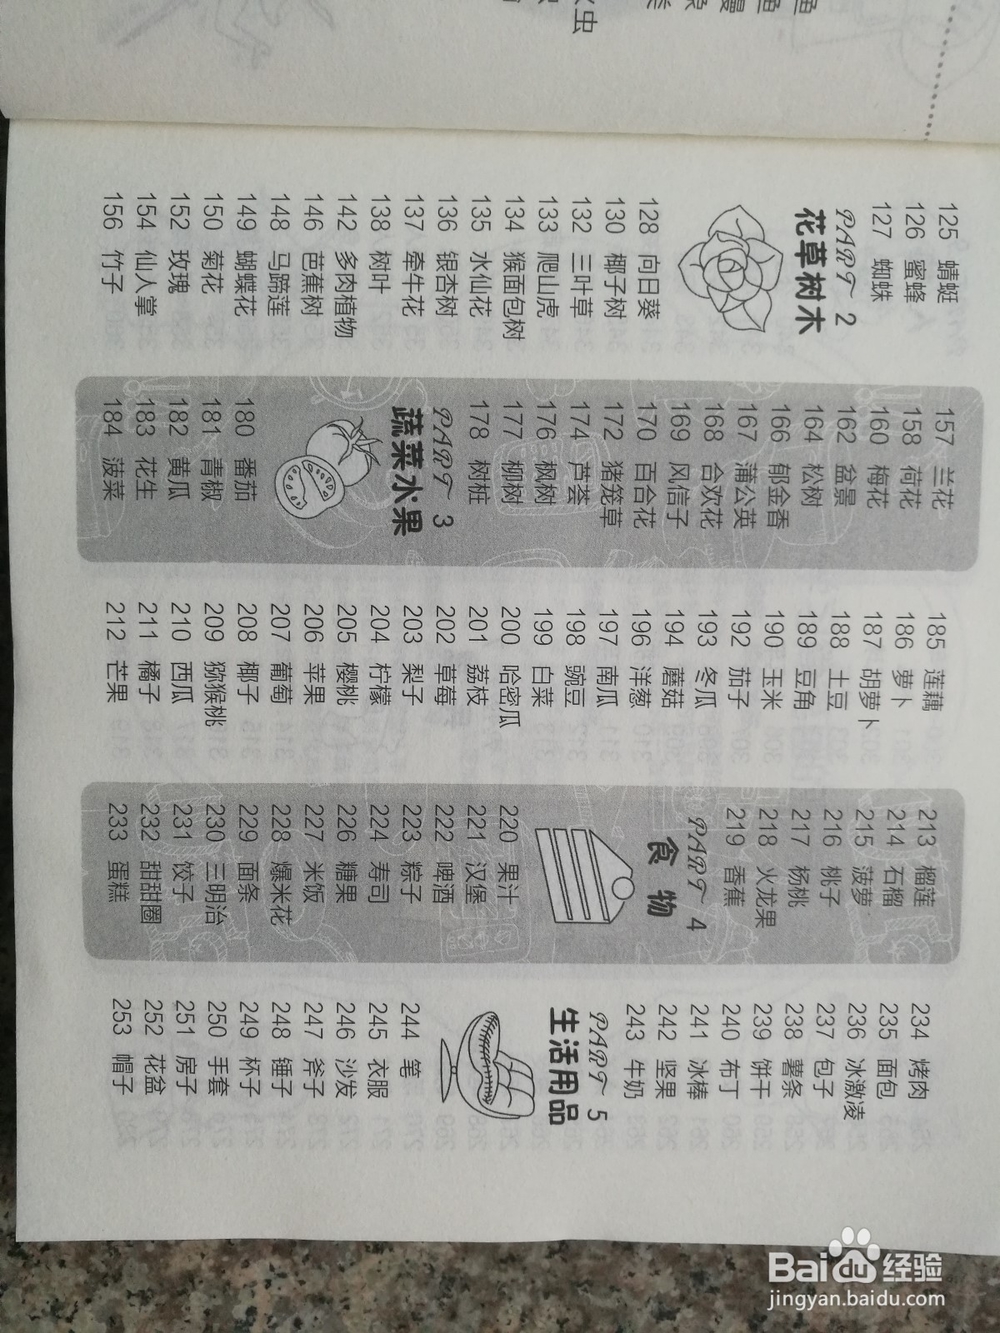 125 蜻蜓
126 蜜蜂
127 蜘蛛
PART 2
花草树木
128 向日葵
130 椰子树
132 三叶草
133 爬山虎
134 猴面包树
135 水仙花
136 银杏树
137 牵牛花
138 树叶
142 多肉植物
146 芭蕉树
148 马蹄莲
149 蝴蝶花
150 菊花
152 玫瑰
154 仙人掌
156 竹子
157 兰花
158 荷花
160 梅花
162 盆景
164 松树
166 郁金香
167 蒲公英
168 合欢花
169 风信子
170 百合花
172 猪笼草
174 芦荟
176 枫树
177 柳树
178 树桩
PART 3
蔬菜水果
180 番茄
181 青椒
182 黄瓜
183 花生
184 菠菜
185 莲藕
186 萝卜
187 胡萝卜
188 土豆
189 豆角
190 玉米
192 茄子
193 冬瓜
194 蘑菇
196 洋葱
197 南瓜
198 豌豆
199 白菜
200 哈密瓜
201 荔枝
202 草莓
203 梨子
204 柠檬
205 樱桃
206 苹果
207 葡萄
208 椰子
209 猕猴桃
210 西瓜
211 橘子
212 芒果
213 榴莲
214 石榴
215 菠萝
216 桃子
217 杨桃
218 火龙果
219 香蕉
PART 4
食物
220 果汁
221 汉堡
222 啤酒
223 粽子
224 寿司
226 糖果
227 米饭
228 爆米花
229 面条
230 三明治
231 饺子
232 甜甜圈
233 蛋糕
234 烤肉
235 面包
236 冰激凌
237 包子
238 薯条
239 饼干
240 布丁
241 冰棒
242 坚果
243 牛奶
PART 5
生活用品
244 笔
245 衣服
246 沙发
247 斧子
248 锤子
249 杯子
250 手套
251 房子
252 花盆
253 帽子
Baidu 经验
jingyan.baidu.com